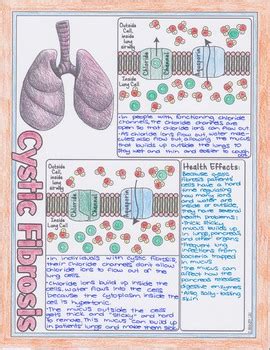 Outside Cell,
inside
lung
airway
Chloride
Channel
Aquaporin
Inside
Lung Cell
• In people with functioning chloride
channels, the chloride channels are
open so that chloride ions can flow out.
As chloride ions flow out, water
also flow out, allowing the mucus
that builds up outside the lungs to
stay wet and thin and easier to cough
out.
Cystic Fibrosis
Outside
Cell, inside
lung airway
Chloride
Channel
Aquaporin
Inside
Lung Cell
• In individuals with cystic fibrosis,
their chloride channels don't allow
chloride ions to flow out of the
lung cells.
• Chloride ions build up inside the
cells, water flows into the cells
because the cytoplasm inside the
cells is hypertonic.
• The mucus outside the cells
gets thick and "sticky" and hard
to remove. This mucus can build up
in patients' lungs and make them sick.
Health Effects:
Because cystic
fibrosis patients'
cells have a hard
time regulating
how many ions
and water are
inside or outside,
they have several
health problems:
• Thick, sticky
mucus builds up
in lungs, pancreas,
and other organs
• Frequent lung
infections from
bacteria trapped
in mucus
• The mucus can
affect how the
pancreas releases
digestive enzymes
• Also, salty-tasting
skin.